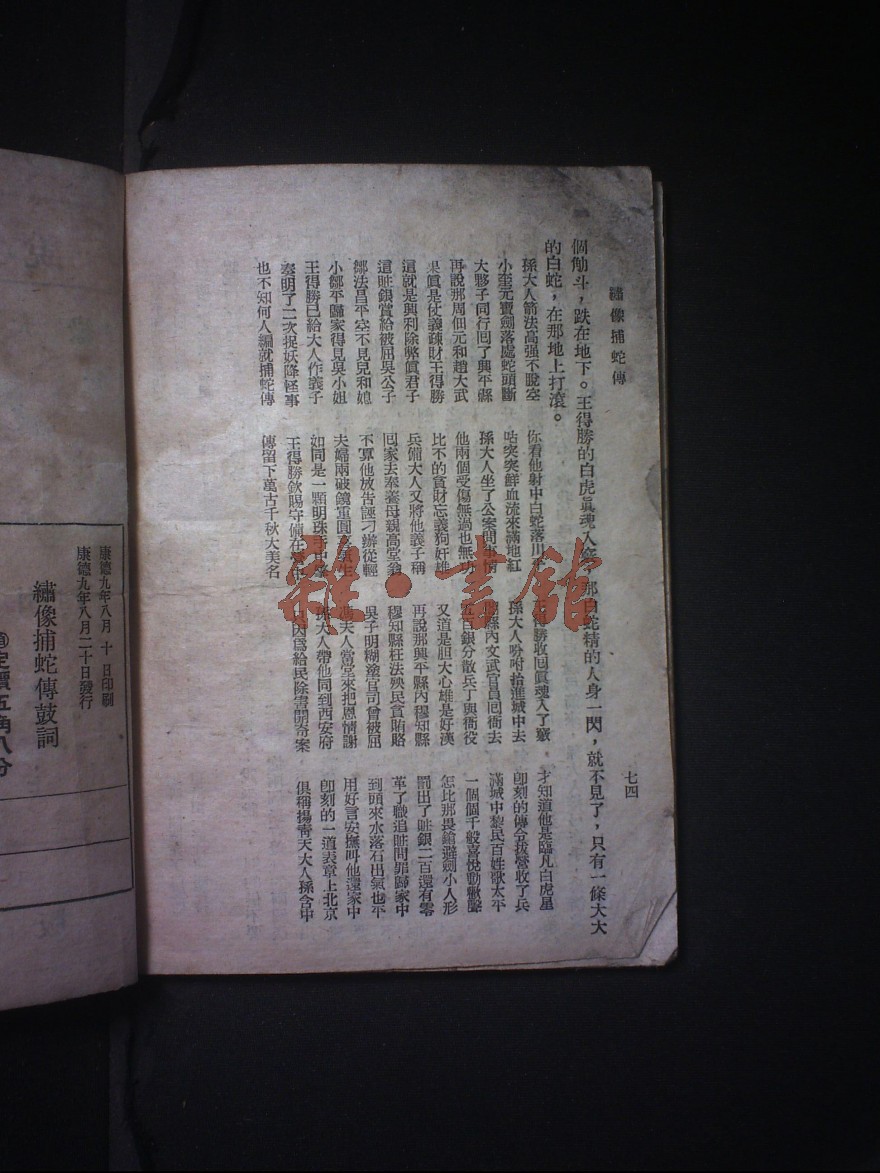 繡像捕蛇傳
七四
個觔斗，跌在地下。王得勝的白虎眞魂入竅，那白蛇精的人身一閃，就不見了，只有一條大大
的白蛇，在那地上打滾。
孫大人箭法高强不脫空
你看他射中白蛇落川平
得勝收囘眞魂入了竅
才知道他是臨凡白虎星
小奎元寶劍落處蛇頭斷
咕突突鮮血流來滿地紅
孫大人吩咐抬進城中去
卽刻的傳令拔營收了兵
大夥子同行囘了興平縣
孫大人坐了公案問事情
縣內文武官員囘衙去
滿城中黎民百姓歌太平
再說那周佃元和趙大武
他兩個受傷無過也無功
五百銀分散兵丁與衙役
一個個千般喜悅動歡聲
果眞是仗義疎財王得勝
比不的貪財忘義狗奸雄
又道是胆大心雄是好漢
怎比那畏鎗避劍小人形
這就是興利除弊眞君子
兵備大人又將他義子稱
再說那興平縣內穆知縣
罰出了賍銀二百還有零
這賍銀賞給被屈吳公子
囘家去奉養母親高堂翁
穆知縣枉法殃民貪賄賂
革了職追賍問罪歸家中
鄒法昌平空不見兒和媳
不算他放告誣刁辦從輕
吳子明糊塗官司曾被屈
到頭來水落石出氣也平
小鄒平歸家得見吳小姐
夫婦兩破鏡重圓
馮夫人當堂來把恩情謝
用好言安撫叫他還家中
王得勝已給大人作義子
如同是一顆明珠手中
孫大人帶他同到西安府
卽刻的一道表章上北京
奏明了二次捉妖降怪事
王得勝欽賜守備在
只因爲給民除害開奇案
俱稱揚靑天大人孫含中
也不知何人編就捕蛇傳
傳留下萬古千秋大美名
康德九年八月十日印刷
康德九年八月二十日發行
繡像捕蛇傳鼓詞
定價五角八分
雜·書館